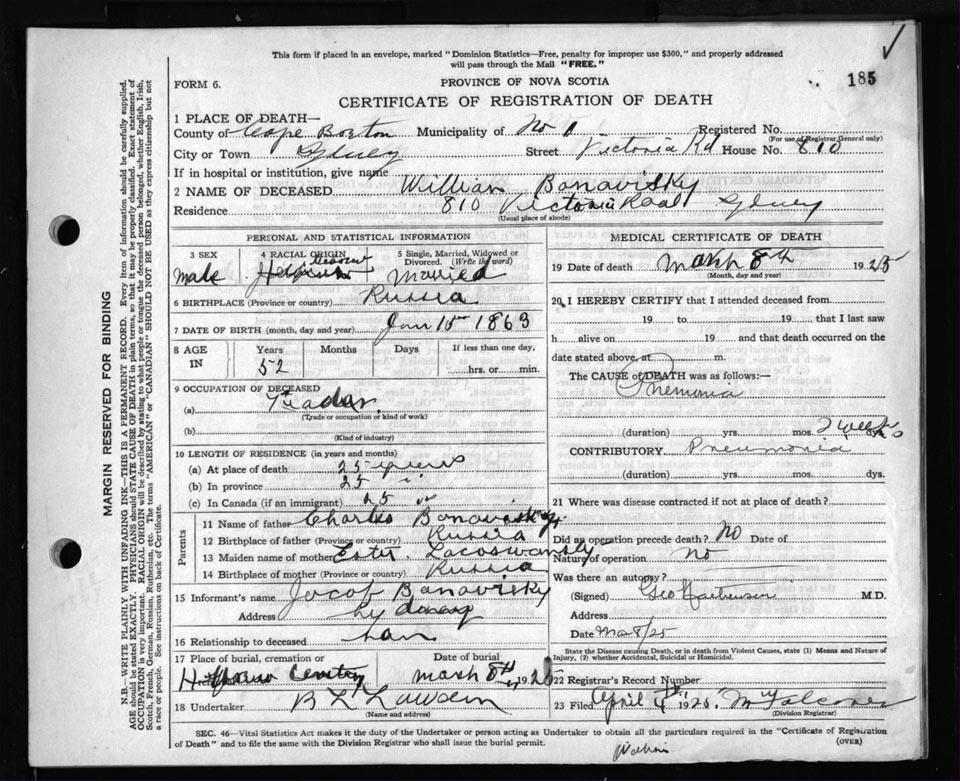 This form if placed in an envelope, marked "Dominion Statistics—Free, penalty for improper use $300," and properly addressed
will pass through the Mail "FREE."
FORM 6.
PROVINCE OF NOVA SCOTIA
185
CERTIFICATE OF REGISTRATION OF DEATH
1 PLACE OF DEATH—
County of Cape Breton Municipality of No 1 Registered No.
(For use of Registrar General only)
City or Town Sydney Street Victoria Rd House No. 810
If in hospital or institution, give name
2 NAME OF DECEASED William Bonavisky
Residence 810 Victoria Road Sydney
(Usual place of abode)
PERSONAL AND STATISTICAL INFORMATION
3 SEX 4 RACIAL ORIGIN 5 Single, Married, Widowed or Divorced. (Write the word)
male Hebrew Married
6 BIRTHPLACE (Province or country) Russia
7 DATE OF BIRTH (month, day and year) Jan 10 1863
8 AGE IN Years Months Days If less than one day,
52 hrs. or min.
9 OCCUPATION OF DECEASED
(a)
(Trade or occupation or kind of work)
(b)
(Kind of industry)
10 LENGTH OF RESIDENCE (in years and months)
(a) At place of death 25 years
(b) In province 25 "
(c) In Canada (if an immigrant) 25
Parents
11 Name of father Charles Bonavisky
12 Birthplace of father (Province or country) Russia
13 Maiden name of mother Ester
14 Birthplace of mother (Province or country) Russia
15 Informant's name Jacob Bonavisky
Address
16 Relationship to deceased
17 Place of burial, cremation or Date of burial
Hebrew Cemetery March 8th 1925
18 Undertaker
(Name and address)
MEDICAL CERTIFICATE OF DEATH
19 Date of death March 8th 1925
(Month, day and year)
20 I HEREBY CERTIFY that I attended deceased from
19 to 19 that I last saw
h alive on 19 and that death occurred on the
date stated above, at m.
The CAUSE of DEATH was as follows:—
Pnemonia
(duration) yrs. mos. 2 weeks dys.
CONTRIBUTORY Pneumonia
(duration) yrs. mos. dys.
21 Where was disease contracted if not at place of death?
Did an operation precede death? No Date of
Nature of operation No
Was there an autopsy?
(Signed) Geo M.D.
Address
Date Mar 8/25
State the Disease causing Death, or in death from Violent Causes, state (1) Means and Nature of
Injury, (2) whether Accidental, Suicidal or Homicidal.
22 Registrar's Record Number
23 Filed April 1925.
(Division Registrar)
SEC. 46—Vital Statistics Act makes it the duty of the Undertaker or person acting as Undertaker to obtain all the particulars required in the "Certificate of Registration
of Death" and to file the same with the Division Registrar who shall issue the burial permit. (OVER)
MARGIN RESERVED FOR BINDING
N.B.—WRITE PLAINLY WITH UNFADING INK—THIS IS A PERMANENT RECORD. Every item of information should be carefully supplied.
AGE should be stated EXACTLY. PHYSICIANS should STATE CAUSE OF DEATH in plain terms, so that it may be properly classified. Exact statement of
OCCUPATION is very important. RACIAL ORIGIN will be described by stating to what people or tongue the deceased person belonged, whether English, Irish,
Scotch, French, German, Russian, Ruthenian, etc. The terms "AMERICAN" or "CANADIAN" SHOULD NOT BE USED as they express citizenship but not
a race or people. See instructions on back of Certificate.